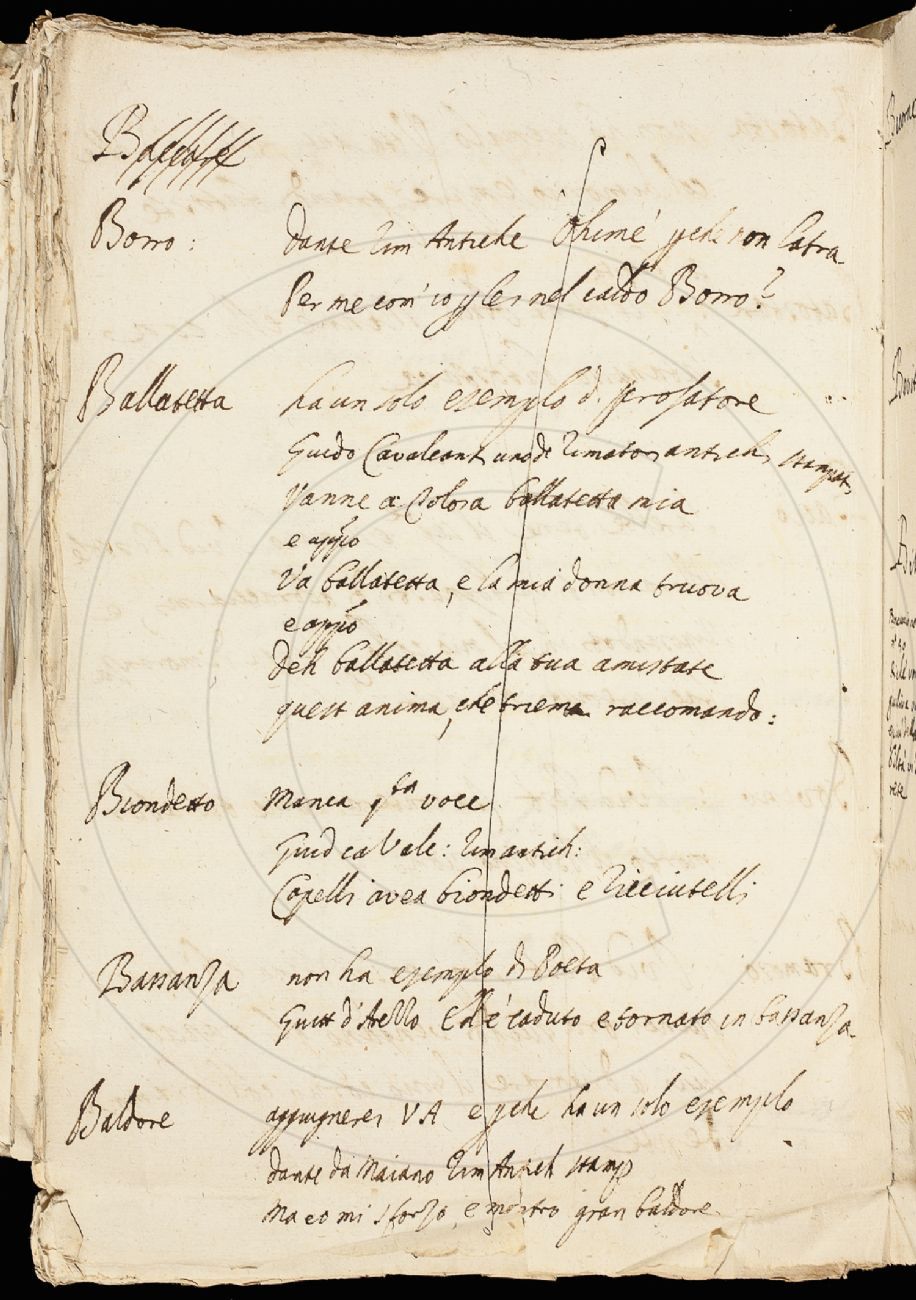 Borro:
Dante Rim Antiche Ohimè pche non latra
Per me com' io p lei nel caldo Borro?
Ballatetta
ha un solo esemplo di prosatore
Guido Cavalcanti uno de Rimatori antichi stampati
Vanne a Tolosa ballatetta mia
e appso
Va ballatetta, e la mia donna truova
e appso
Deh ballatetta alla tua amistate
quest anima, che triema raccomando:
Biondetto
Manca qsta voce
Guid caVale: Rim antich:
Capelli avea biondetti e ricciutelli
Bassanza
non ha esemplo di Poeta
Guitt d'Arezzo Ell'è caduto e tornato in bassanza
Baldore
aggiugnerei V A e pche ha un solo esemplo
Dante da Maiano Rim Antich stamp
Ma eo mi sforzo, e mostro gran baldore